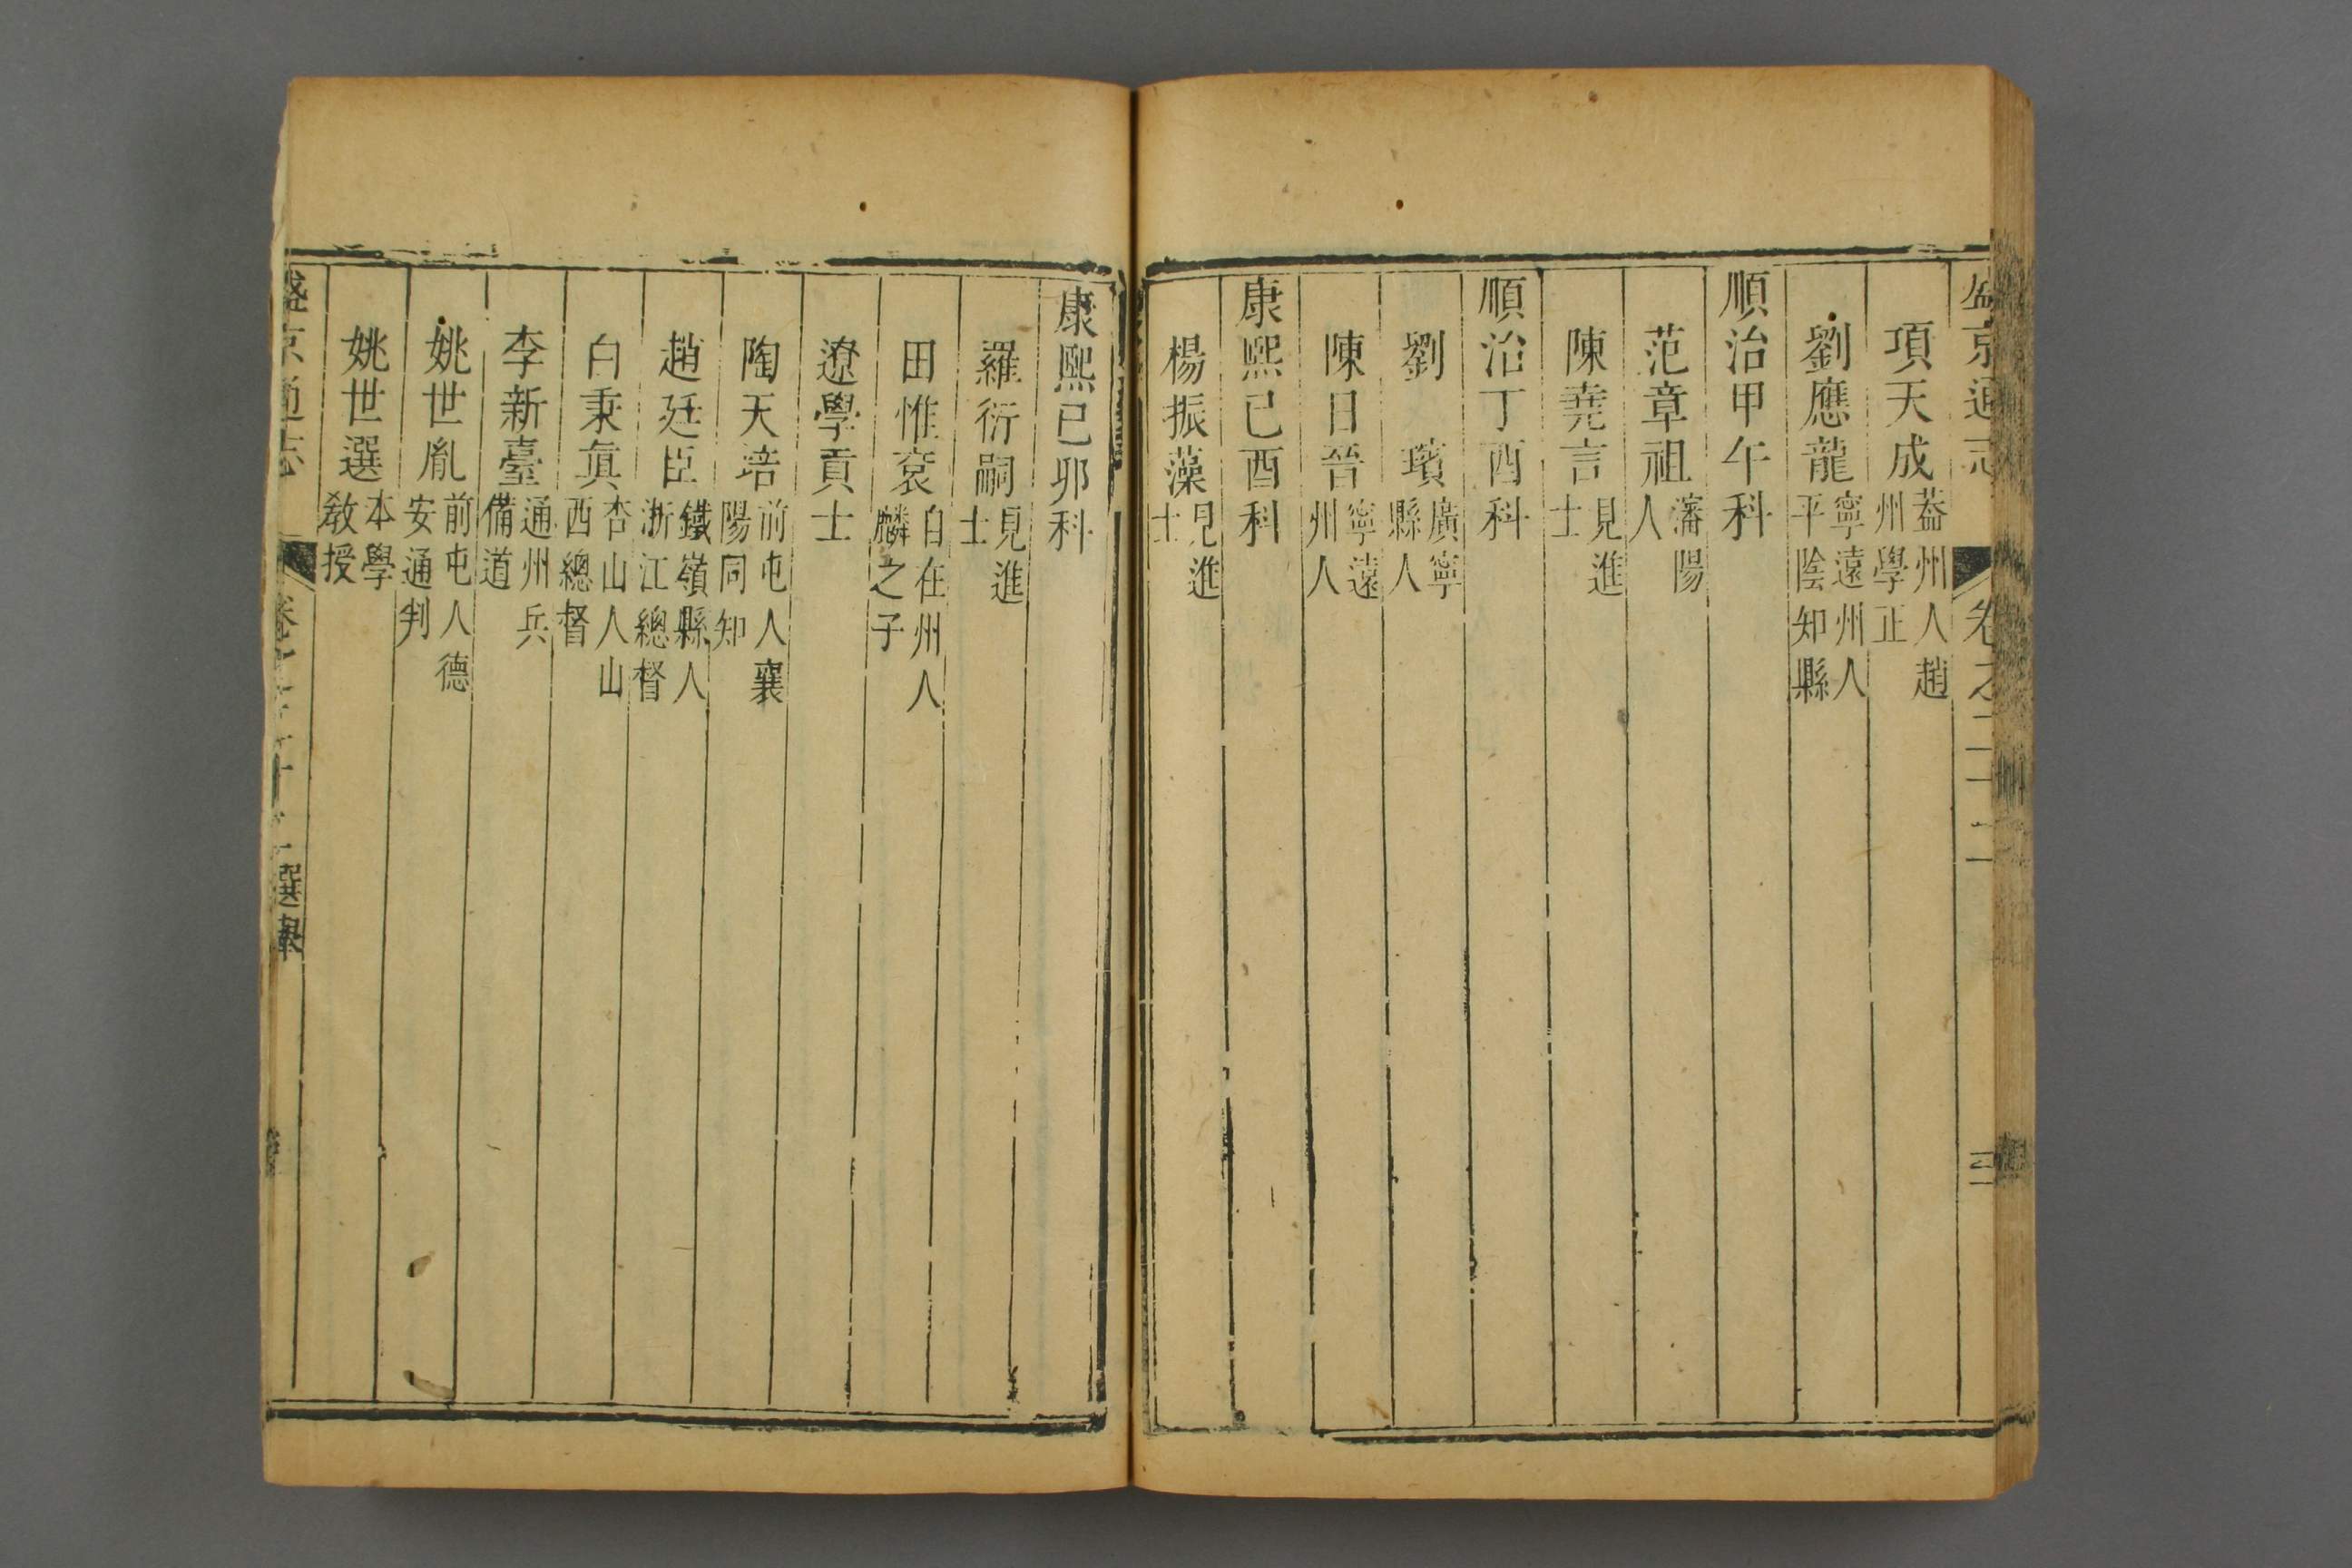 盛京通志 卷之二十二 三
項天成 葢州人趙州學正
劉應龍 寧遠州人平陰知縣
順治甲午科
范章祖 瀋陽人
陳堯言 見進士
順治丁酉科
劉璸 廣寧縣人
陳日晉 寧遠州人
康熙己酉科
楊振藻 見進士
康熙己卯科
羅衍嗣 見進士
田惟衮 自在州人麟之子
遼學貢士
陶天培 前屯人襄陽同知
趙廷臣 鐵嶺縣人浙江總督
白秉眞 杏山人山西總督
李新臺 通州兵備道
姚世胤 前屯人德安通判
姚世選 本學教授
盛京通志 選舉